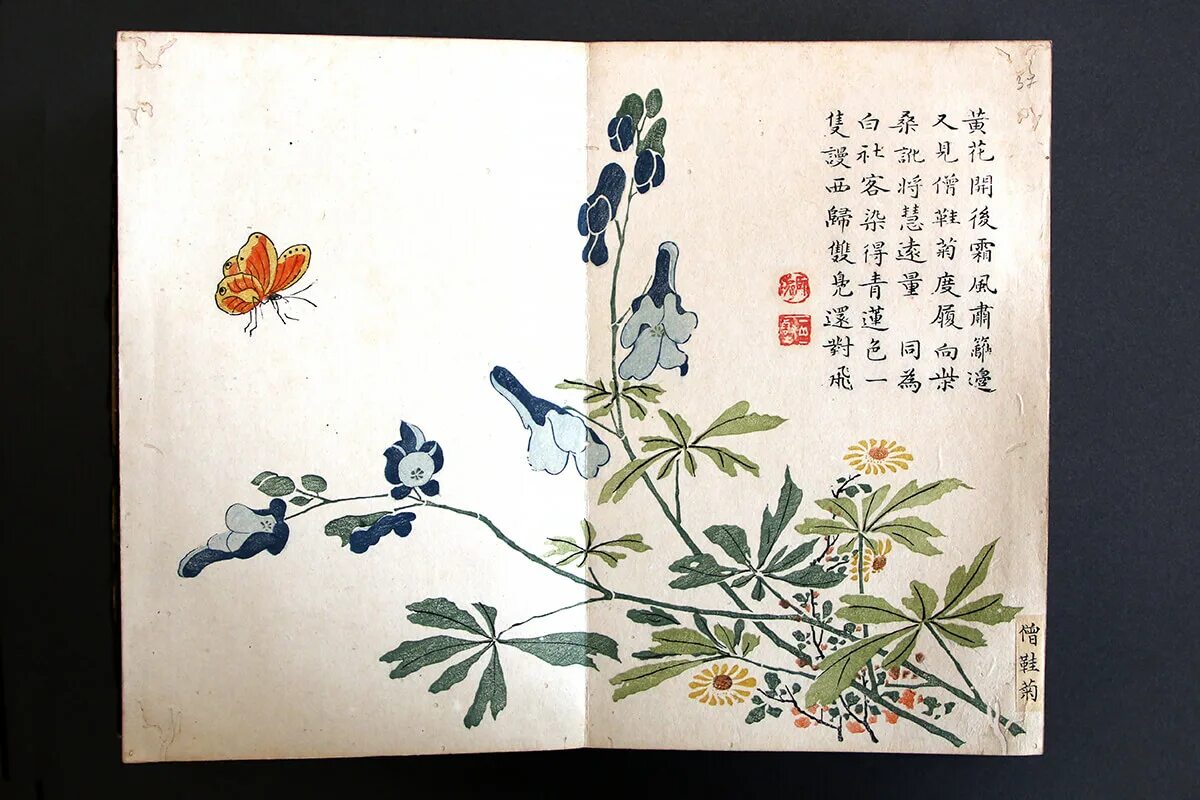 黃花開後霜風肅籬邊
又見僧鞋菊度履向柴
桑訛將慧遠量 同為
白社客染得青蓮色一
隻謾西歸雙鳧還對飛
僧鞋菊
37